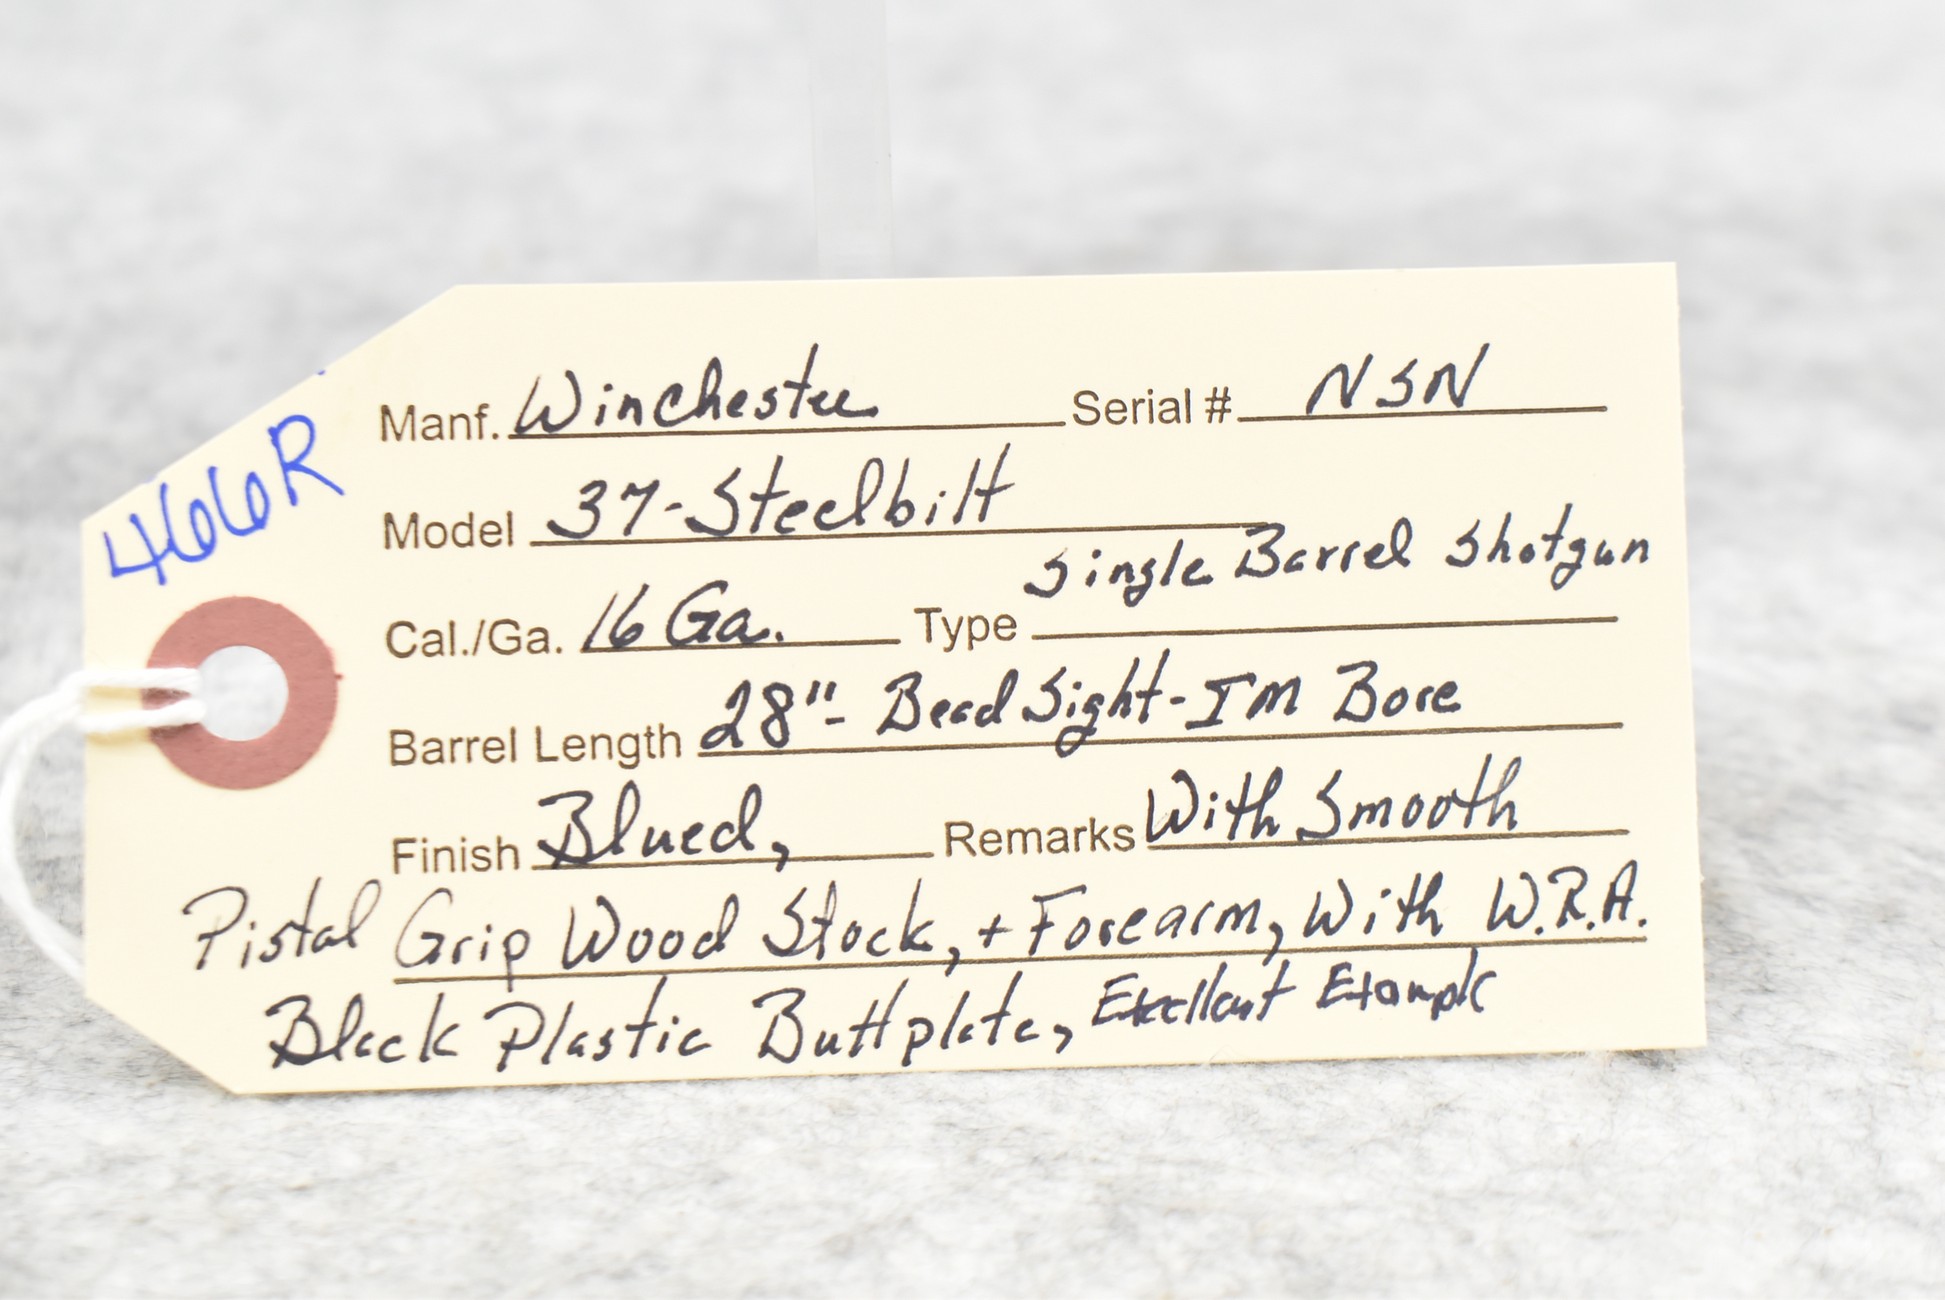 466R
Manf. Winchester Serial # NSN
Model 37-Steelbilt
Cal./Ga. 16 Ga. Type Single Barrel Shotgun
Barrel Length 28"- Bead Sight-IM Bore
Finish Blued, Remarks With Smooth
Pistal Grip Wood Stock, + Forearm, With W.R.A.
Black Plastic Buttplate, Excellant Example